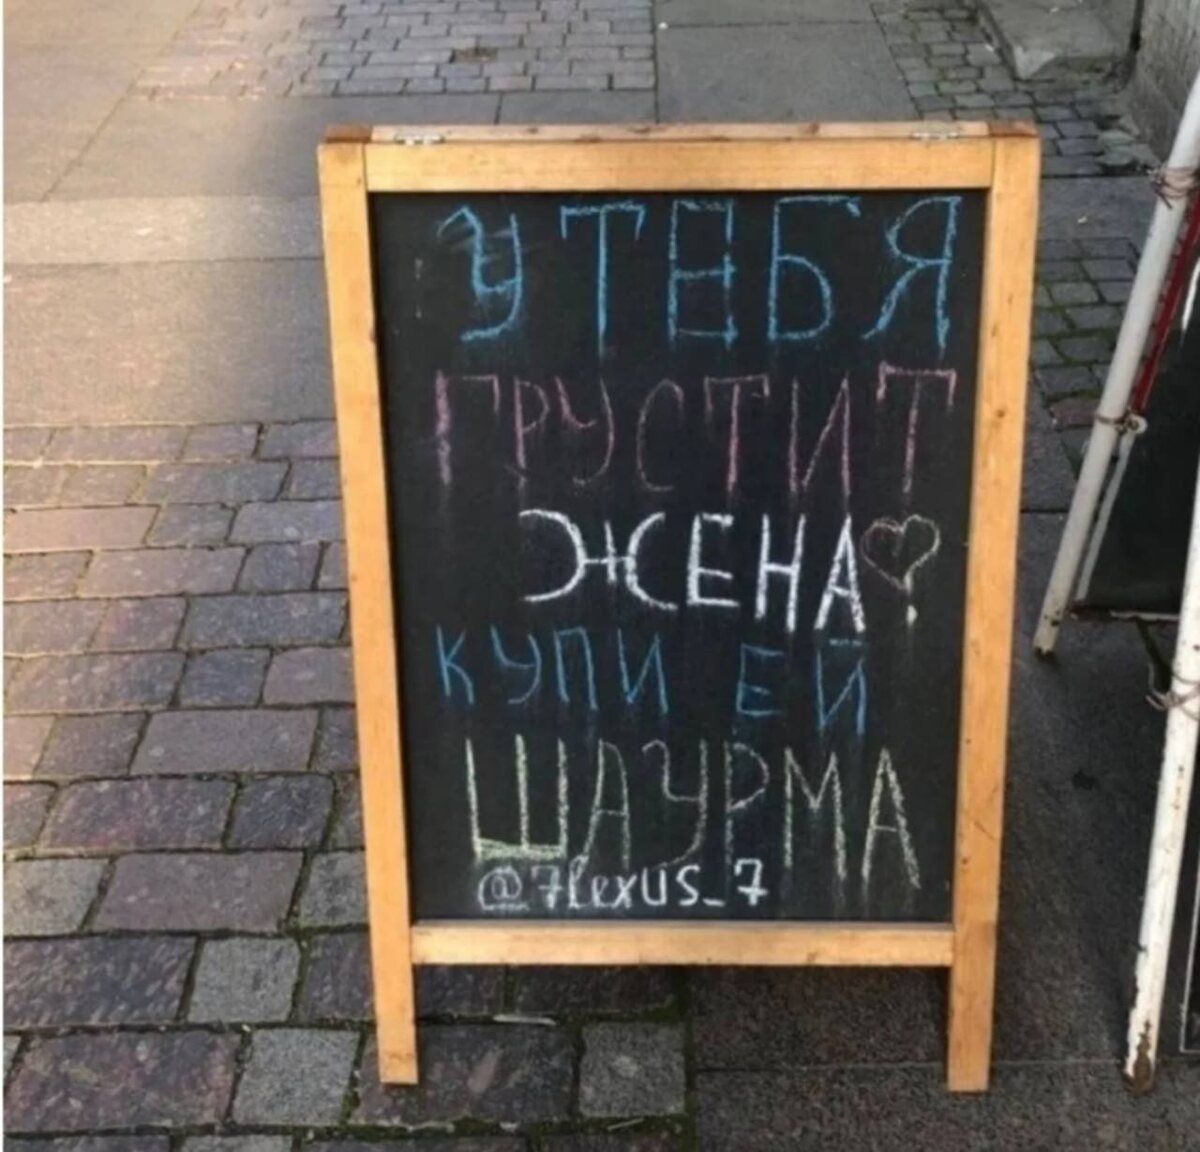 У ТЕБЯ
ГРУСТИТ
ЖЕНА
КУПИ ЕЙ
ШАУРМА
@7lexus_7